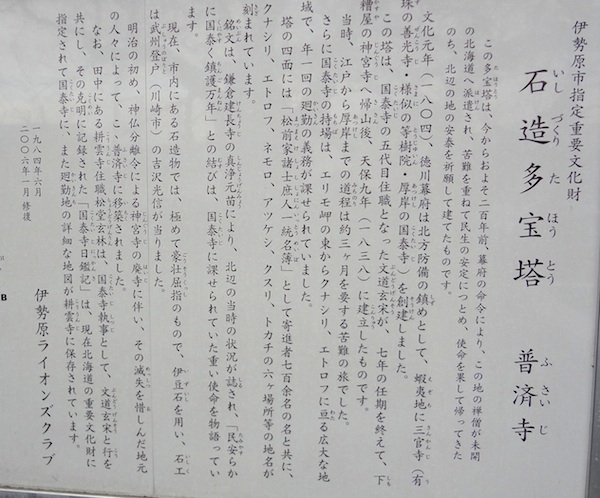 伊勢原市指定重要文化財
石造多宝塔 普済寺
いし づくり た ほう とう ふ さい じ
この多宝塔は、今からおよそ二百年前、幕府の命令により、この地の禅僧が未開
の北海道へ派遣され、苦難を重ねて民生の安定につとめ、使命を果して帰ってきた
のち、北辺の地の安泰を祈願して建てたものです。
文化元年(一八〇四)、徳川幕府は北方防備の鎮めとして、蝦夷地に三官寺(有
珠の善光寺・様似の等樹院・厚岸の国泰寺)を創建しました。
この塔は、国泰寺の五代目住職となった文道玄宋が、七年の任期を終えて、下
糟屋の神宮寺へ帰山後、天保九年(一八三八)に建立したものです。
当時、江戸から厚岸までの道程は約三ヶ月を要する苦難の旅でした。
さらに国泰寺の持場は、エリモ岬の東からクナシリ、エトロフに亘る広大な地
域で、年一回の廻勤の義務が課せられていました。
塔の四面には「松前家諸士庶人一統名簿」として寄進者七百余名の名と共に、
クナシリ、エトロフ、ネモロ、アツケシ、クスリ、トカチの六ヶ場所等の地名が
刻まれています。
銘文は、鎌倉建長寺の真浄元苗により、北辺の当時の状況が誌され、「民安らか
に国泰く鎮護万年」との結びは、国泰寺に課せられていた重い使命を物語ってい
ます。
現在、市内にある石造物では、極めて豪壮屈指のもので、伊豆石を用い、石工
は武州登戸(川崎市)の吉沢光信が当りました。
明治の初め、神仏分離令による神宮寺の廃寺に伴い、その滅失を惜しんだ地元
の人々によって、こゝ普済寺に移築されました。
なお、田中にある耕雲寺住職松堂玄林は、国泰寺執事として、文道玄宋と行を
共にし、その克明に記録された「国泰寺日鑑記」は、現在北海道の重要文化財に
指定されて国泰寺に、また廻勤地の詳細な地図が耕雲寺に保存されています。
一九八四年六月
二〇〇六年一月 修復
伊勢原ライオンズクラブ
B